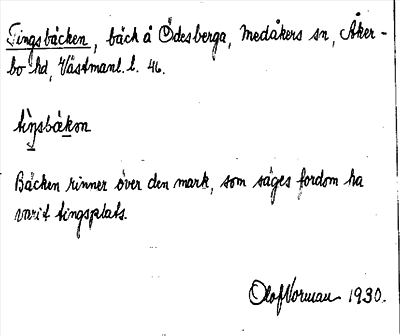 Tingsbäcken, bäck å Ödesberga, Medåkers sn, Åker-
bo hd, Västmanl. l. 46.
tìŋsbækon
Bäcken rinner över den mark, som säges fordom ha
varit tingsplats.
Olof Vorman 1930.